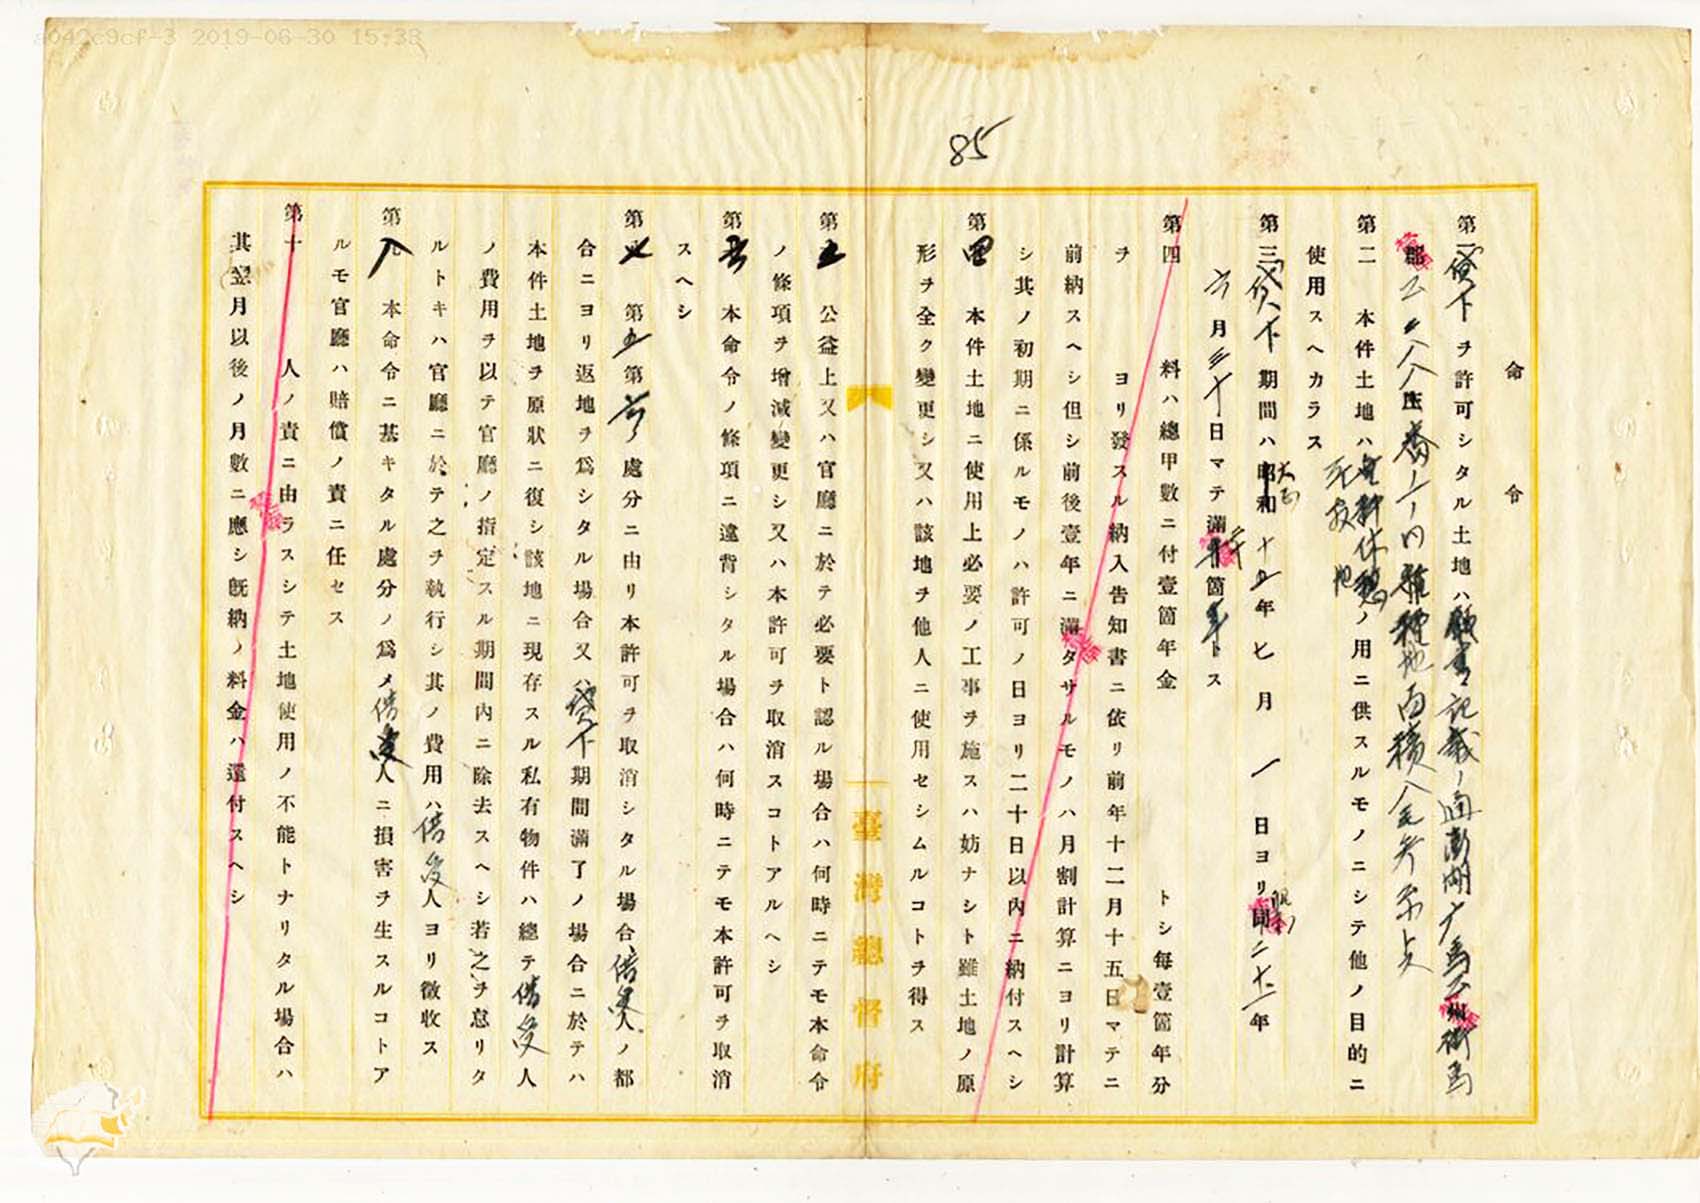 a042c9cf-3 2019-06-30 15:33
85
命令
第一 貸下ヲ許可シタル土地ハ願書記載ノ通澎湖廳馬公州街馬
郡公 庄 ノ內雜種地面積
第二 本件土地ハ ノ用ニ供スルモノニシテ他ノ目的ニ
使用スヘカラス
第三 貸下期間ハ大正昭和十五年七月一日ヨリ昭和同二十一年
六月三十日マテ滿 箇年トス
第四 料ハ總甲數ニ付壹箇年金 トシ每壹箇年分
ヲ ヨリ發スル納入告知書ニ依リ前年十二月十五日マテニ
前納スヘシ但シ前後壹年ニ滿タサルモノハ月割計算ニヨリ計算
シ其ノ初期ニ係ルモノハ許可ノ日ヨリ二十日以內ニ納付スヘシ
第四 本件土地ニ使用上必要ノ工事ヲ施スハ妨ナシト雖土地ノ原
形ヲ全ク變更シ又ハ該地ヲ他人ニ使用セシムルコトヲ得ス
臺灣總督府
第五 公益上又ハ官廳ニ於テ必要ト認ル場合ハ何時ニテモ本命令
ノ條項ヲ增減變更シ又ハ本許可ヲ取消スコトアルヘシ
第六 本命令ノ條項ニ違背シタル場合ハ何時ニテモ本許可ヲ取消
スヘシ
第七 第五第六ノ處分ニ由リ本許可ヲ取消シタル場合借受人ノ都
合ニヨリ返地ヲ爲シタル場合又ハ貸下期間滿了ノ場合ニ於テハ
本件土地ヲ原狀ニ復シ該地ニ現存スル私有物件ハ總テ借受人
ノ費用ヲ以テ官廳ノ指定スル期間內ニ除去スヘシ若之ヲ怠リタ
ルトキハ官廳ニ於テ之ヲ執行シ其ノ費用ハ借受人ヨリ徵收ス
第八 本命令ニ基キタル處分ノ爲メ借受人ニ損害ヲ生スルコトア
ルモ官廳ハ賠償ノ責ニ任セス
第十 人ノ責ニ由ラスシテ土地使用ノ不能トナリタル場合ハ
其翌月以後ノ月數ニ應シ旣納ノ料金ハ還付スヘシ